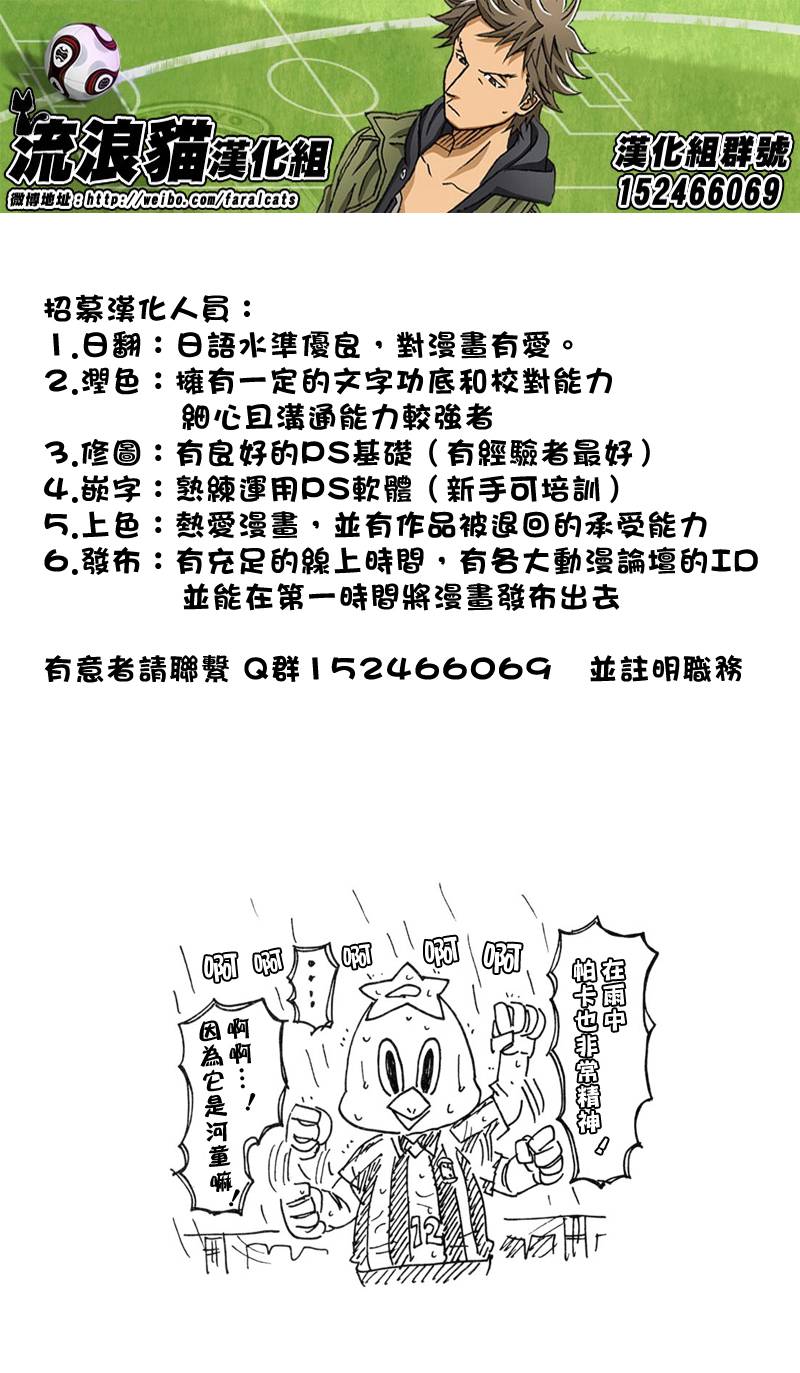 流浪貓漢化組
微博地址:http://weibo.com/faralcats
漢化組群號
152466069
招募漢化人員：
1.日翻：日語水準優良，對漫畫有愛。
2.潤色：擁有一定的文字功底和校對能力
細心且溝通能力較強者
3.修圖：有良好的PS基礎（有經驗者最好）
4.嵌字：熟練運用PS軟體（新手可培訓）
5.上色：熱愛漫畫，並有作品被退回的承受能力
6.發布：有充足的線上時間，有各大動漫論壇的ID
並能在第一時間將漫畫發布出去
有意者請聯繫 Q群152466069 並註明職務
在雨中
帕卡也非常精神！
啊
啊
啊
啊
啊
……
啊啊…！
因為它是河童嘛！
12